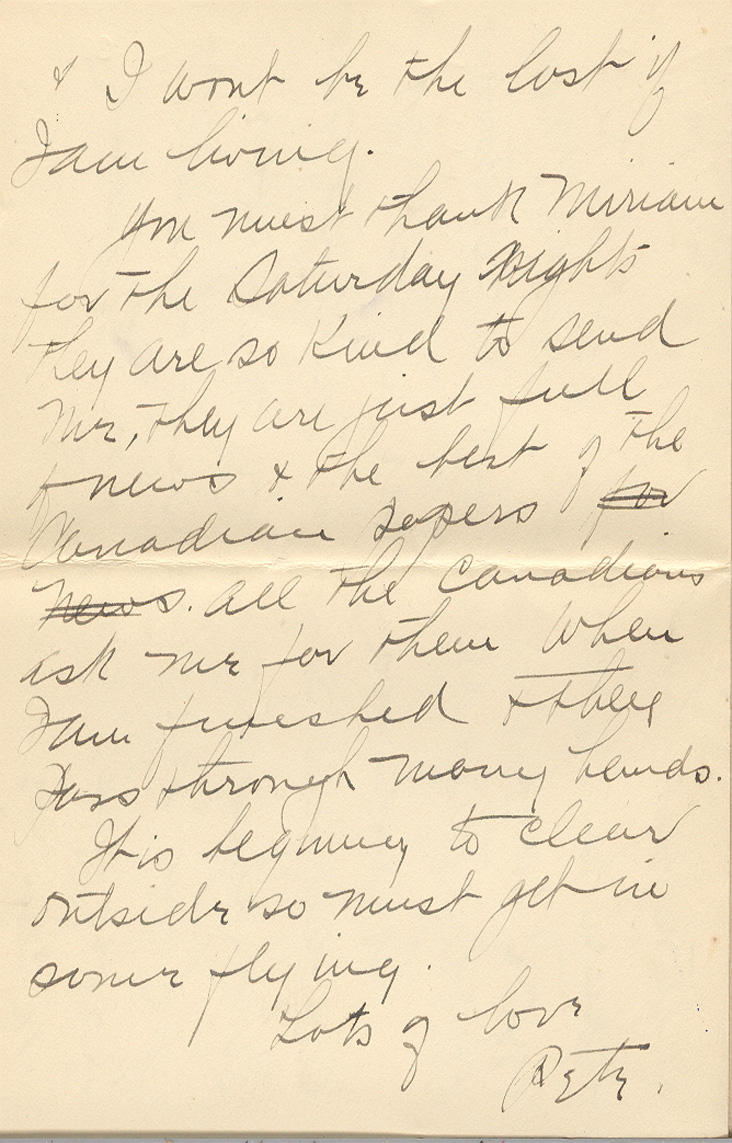 & I wont be the last if
I am living.
You must thank Miriam
for the Saturday Nights
they are so kind to send
me, they are just full
of news & the best of the
Canadian papers for
news. all the Canadians
ask me for them when
I am finished & they
pass through many hands.
It is beginning to clear
outside so must get in
some flying.
Lots of love
Pete.